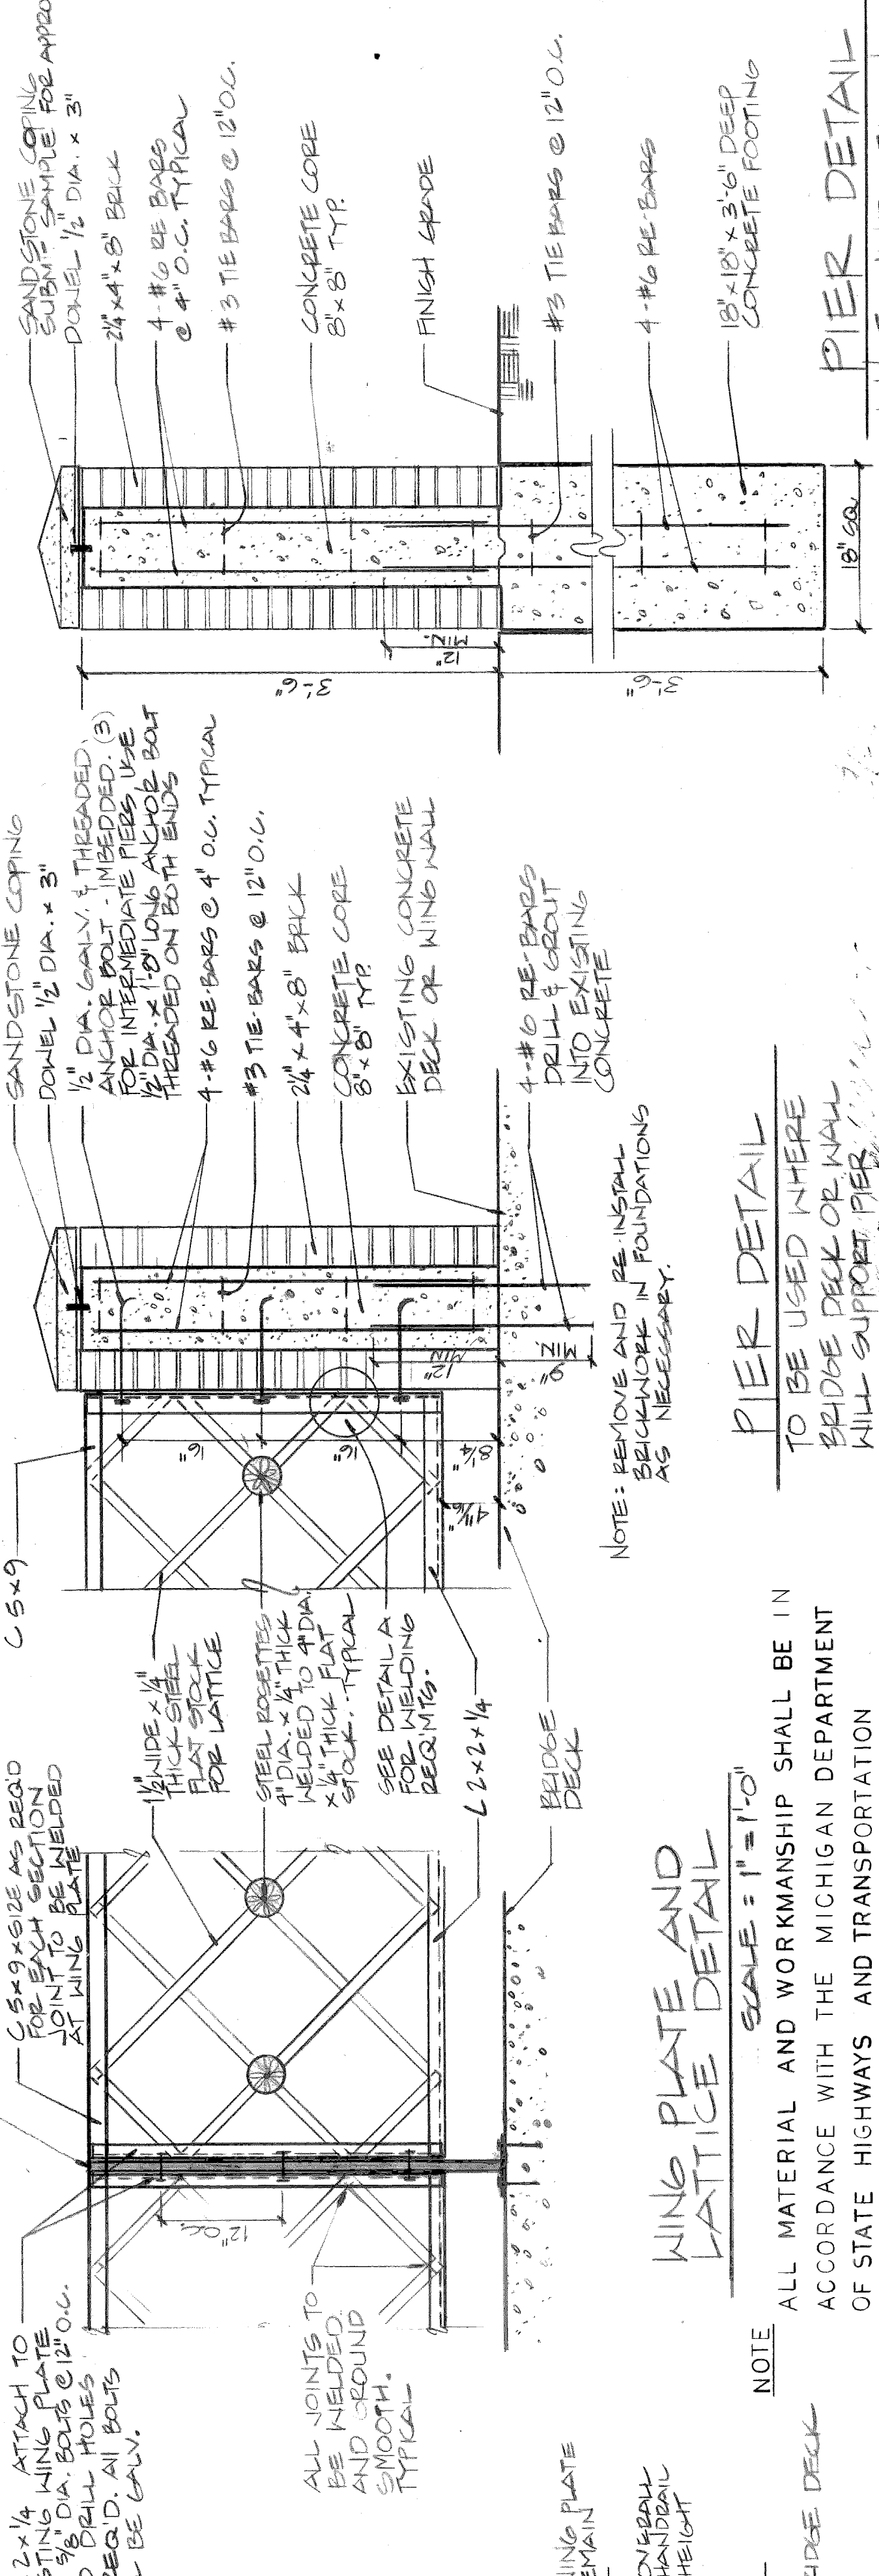 2x¼ ATTACH TO
STING WING PLATE
5/8" DIA. BOLTS @ 12" O.C.
DRILL HOLES
REQ'D. All BOLTS
BE GALV.
C 5x9xSIZE AS REQ'D
FOR EACH SECTION
JOINT TO BE WELDED
AT WING PLATE
12" O.C.
ALL JOINTS TO
BE WELDED
AND GROUND
SMOOTH.
TYPICAL
C 5x9
1½" WIDE x ¼"
THICK STEEL
FLAT STOCK
FOR LATTICE
STEEL ROSETTES
4" DIA. x ¼" THICK
WELDED TO 4" DIA.
x ¼" THICK FLAT
STOCK. - TYPICAL
SEE DETAIL A
FOR WELDING
REQ'MTS.
L 2x2x¼
BRIDGE
DECK
WING PLATE AND
LATTICE DETAIL
SCALE = 1" = 1'-0"
NOTE
ALL MATERIAL AND WORKMANSHIP SHALL BE IN
ACCORDANCE WITH THE MICHIGAN DEPARTMENT
OF STATE HIGHWAYS AND TRANSPORTATION
WING PLATE
EMAIN
OVERALL
HANDRAIL
HEIGHT
IDGE DECK
SANDSTONE COPING
DOWEL ½" DIA. x 3"
½" DIA. GALV. & THREADED
ANCHOR BOLT - IMBEDDED. (3)
FOR INTERMEDIATE PIERS USE
½" DIA. x 1'-8" LONG ANCHOR BOLT
THREADED ON BOTH ENDS
4-#6 RE-BARS @ 4" O.C. TYPICAL
#3 TIE-BARS @ 12" O.C.
2¼ x 4" x 8" BRICK
CONCRETE CORE
8" x 8" TYP.
EXISTING CONCRETE
DECK OR WING WALL
4-#6 RE-BARS
DRILL & GROUT
INTO EXISTING
CONCRETE
16"
16"
8¼"
4 11/16"
12"
MIN.
9"
MIN.
NOTE: REMOVE AND RE-INSTALL
BRICKWORK IN FOUNDATIONS
AS NECESSARY.
PIER DETAIL
TO BE USED WHERE
BRIDGE DECK OR WALL
WILL SUPPORT PIER
SANDSTONE COPING
SUBMIT SAMPLE FOR APPRO
DOWEL ½" DIA. x 3"
2¼ x 4" x 8" BRICK
4-#6 RE BARS
@ 4" O.C. TYPICAL
#3 TIE BARS @ 12" O.C.
CONCRETE CORE
8" x 8" TYP.
FINISH GRADE
#3 TIE BARS @ 12" O.C.
4-#6 RE-BARS
18" x 18" x 3'-6" DEEP
CONCRETE FOOTING
3'-6"
12"
MIN.
3'-6"
18" SQ.
PIER DETAIL